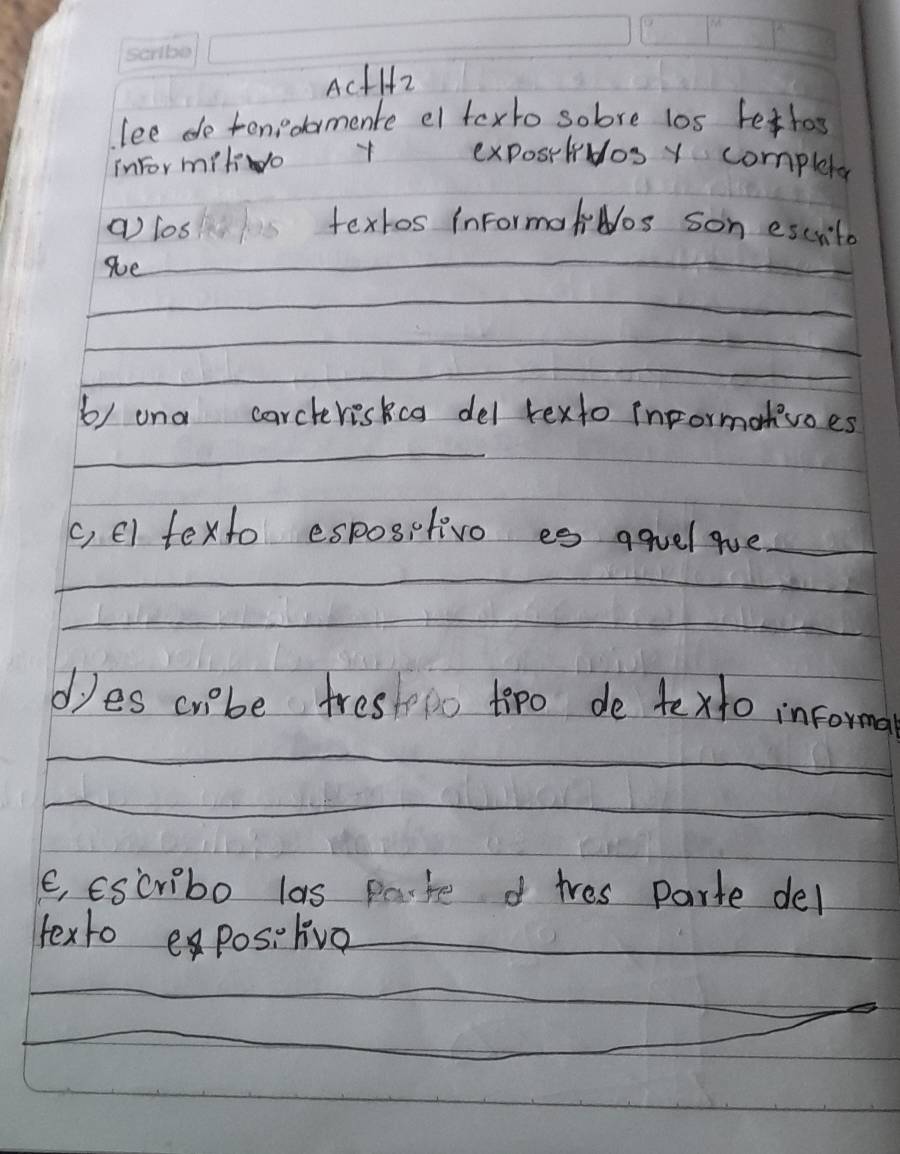 Scribe
ActH2
lee detenidamente el texto sobre los textos
informitivo y expositivos y completa
a) los textos informativos son escrito
que
b) una carcteristica del texto informativo es
c, El texto espositivo es aquel que
d) es cribe tres tipo de texto informat
E, Escribo las parte d tres parte del
texto expositivo